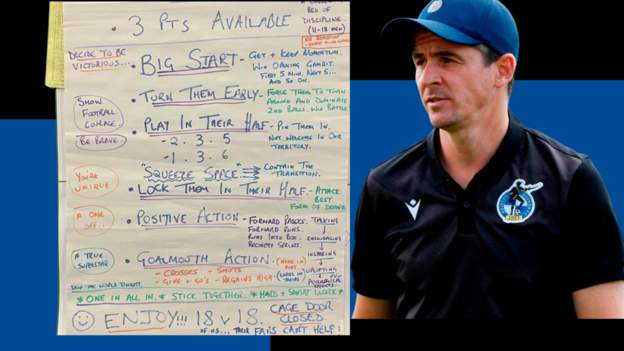 • 3 PTS AVAILABLE
BED OF
DISCIPLINE
(11-18 MEN)
DECIDE TO BE
VICTORIOUS...
• BIG START - GET + KEEP MOMENTUM.
WIN OPENING GAMBIT.
FIRST 5 MIN. NEXT 5...
AND SO ON.
• TURN THEM EARLY - FORCE THEM TO TURN
AROUND AND DOMINATE
2ND BALLS. WIN BATTLE
SHOW
FOOTBALL
COURAGE.
BE BRAVE.
• PLAY IN THEIR HALF - PIN THEM IN.
NOT IN OUR
TERRITORY.
- 2. 3. 5
- 1. 3. 6
"SQUEEZE SPACE" CONTAIN THE
TRANSITION.
YOU'RE
UNIQUE
• LOCK THEM IN THEIR HALF - ATTACK
BEST
FORM OF
A ONE
OFF..
• POSITIVE ACTION - FORWARD PASSES.
FORWARD RUNS.
RUNS INTO BOX.
RECOVERY SPRINTS.
TALKING
ENCOURAGING
INSPIRING
UPLIFTING
A TRUE
SUPERSTAR
• GOALMOUTH ACTION.
- CROSSES - SHOTS
- GIVE + GO'S - REGAINS HIGH.
SHOW THE WORLD TONIGHT
* ONE IN ALL IN. * STICK TOGETHER. * HARD + SMART WORK *
ENJOY!!! 18 V 18. CAGE DOOR
CLOSED.
OF US... THEIR FANS CAN'T HELP!